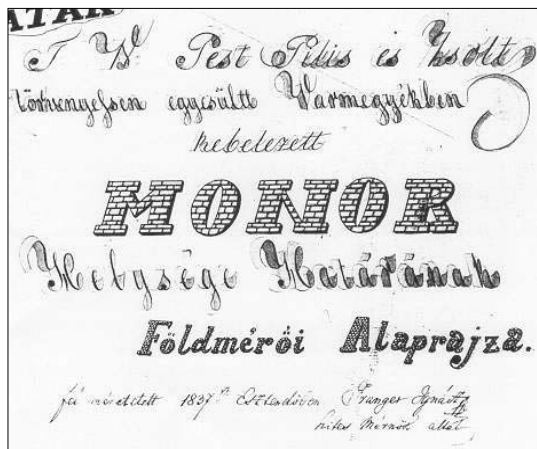 ATÁR
T. N. Pest Pilis és Zsolt
törvenyessen egyesültt Varmegyékben
kebelezett
MONOR
Helysége Határának
Földmérői Alaprajza.
fel méretetett 1837ik Esztendőben Pranger Ignátz
hites Mérnök által